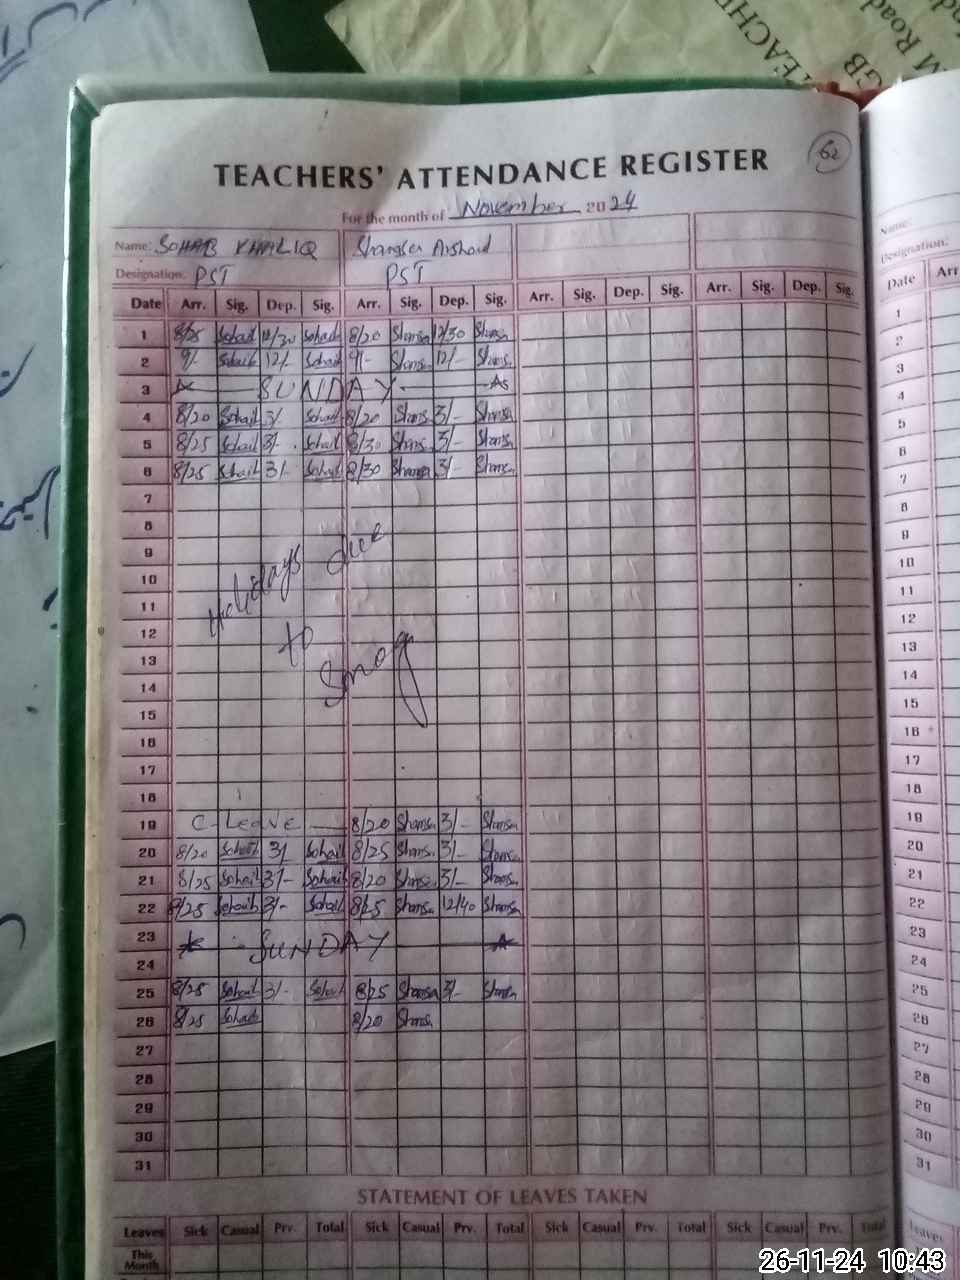 TEACHERS' ATTENDANCE REGISTER
62
For the month of November 2024
Name: SOHAB KHALIQ Shamsa Arshad
Designation: PST PST
Date Arr. Sig. Dep. Sig. Arr. Sig. Dep. Sig. Arr. Sig. Dep. Sig. Arr. Sig. Dep. Sig.
1 8/25 Sohaib 12/30 Sohaib 8/20 Shamsa 12/30 Shamsa
2 9/- Sohaib 12/- Sohaib 9/- Shamsa 12/- Shamsa
3 SUNDAY
4 8/20 Sohaib 3/- Sohaib 8/20 Shamsa 3/- Shamsa
5 8/25 Sohaib 3/- Sohaib 8/30 Shamsa 3/- Shamsa
6 8/25 Sohaib 3/- Sohaib 8/30 Shamsa 3/- Shamsa
7
8
9
10
11
12
13
14
15
16
17
18
Holidays due
to
Smog
19 C-Leave 8/20 Shamsa 3/- Shamsa
20 8/20 Sohaib 3/ Sohaib 8/25 Shamsa 3/- Shamsa
21 8/25 Sohaib 3/- Sohaib 8/20 Shamsa 3/- Shamsa
22 8/25 Sohaib 3/- Sohaib 8/25 Shamsa 12/40 Shamsa
23 SUNDAY
24
25 8/25 Sohaib 3/- Sohaib 8/25 Shamsa 3/- Shamsa
26 8/25 Sohaib 8/20 Shamsa
27
28
29
30
31
STATEMENT OF LEAVES TAKEN
Leaves Sick Casual Prv. Total Sick Casual Prv. Total Sick Casual Prv. Total Sick Casual Prv. Total
This
Month
Name:
Designation:
Date Arr
1
2
3
4
5
6
7
8
9
10
11
12
13
14
15
16
17
18
19
20
21
22
23
24
25
26
27
28
29
30
31
Leaves
TEACHE
GB
M Road
26-11-24 10:43